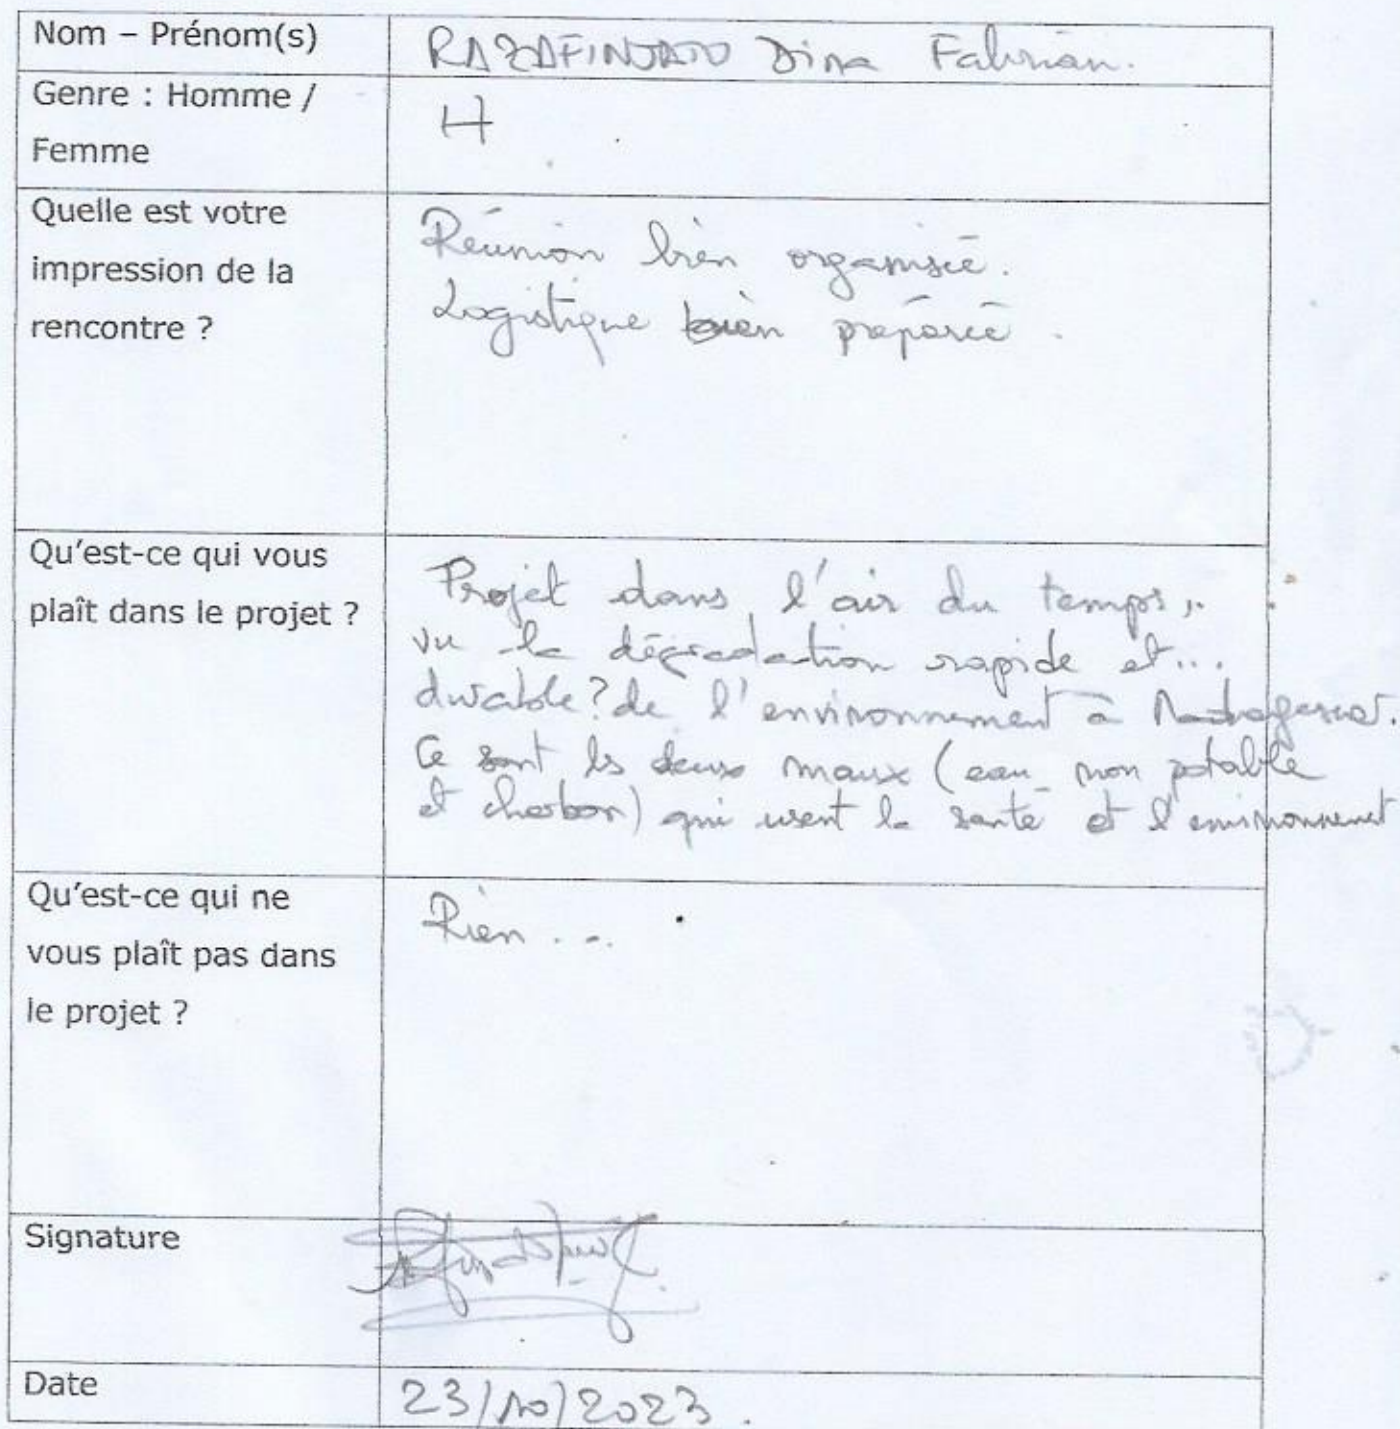 Nom – Prénom(s)
RAZAFINJATO Dina Fabrian.
Genre : Homme /
Femme
H
Quelle est votre
impression de la
rencontre ?
Réunion bien organisée.
Logistique bien préparée.
Qu'est-ce qui vous
plaît dans le projet ?
Projet dans l'air du temps,
vu la dégradation rapide et...
durable? de l'environnement à Madagascar.
Ce sont les deux maux (eau non potable
et charbon) qui usent la santé et l'environnement
Qu'est-ce qui ne
vous plaît pas dans
le projet ?
Rien ...
Signature
Date
23/10/2023.